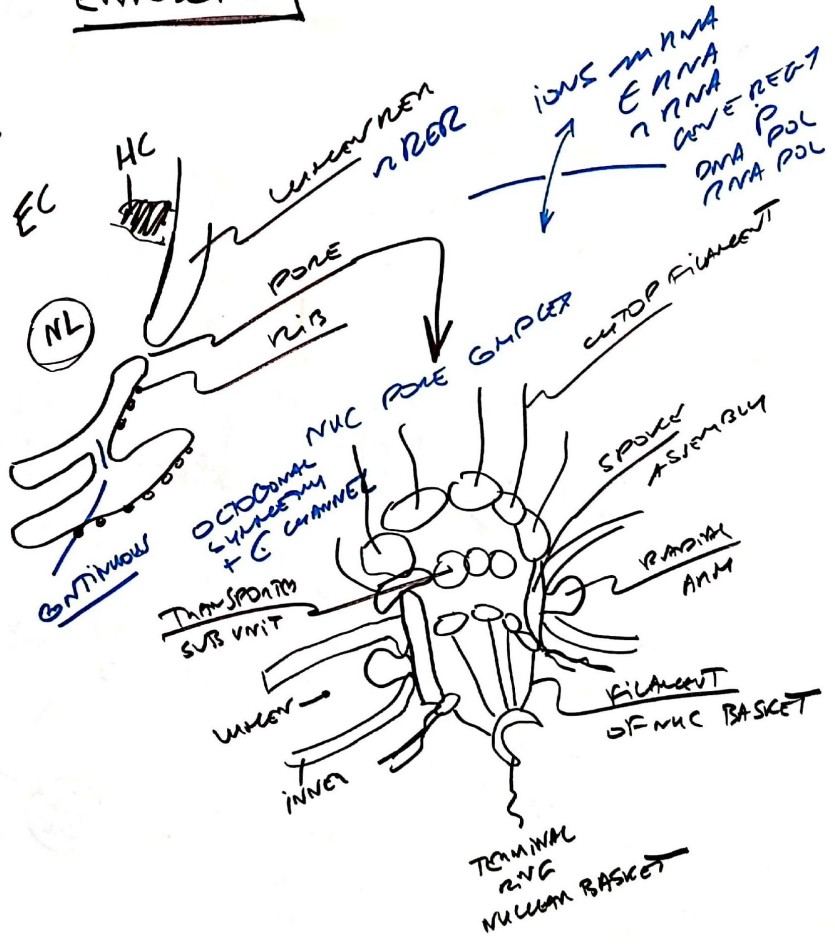 EC
HC
LUMEN RER
RER
NL
PORE
RIB
CONTINUOUS
IONS mRNA
tRNA
rRNA
GENE REG
P
DNA POL
RNA POL
NUC PORE COMPLEX
OCTOGONAL
SYMMETRY
+ C CHANNEL
CYTOP FILAMENT
SPOKE
ASSEMBLY
RADIAL
ARM
TRANSPORTER
SUB UNIT
LUMEN
INNER
FILAMENT
OF NUC BASKET
TERMINAL
RING
NUCLEAR BASKET